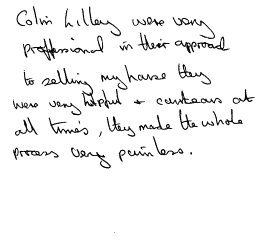 Colin Lilley were very
proffesional in their approach
to selling my house they
were very helpful + courteous at
all times, they made the whole
process very painless.